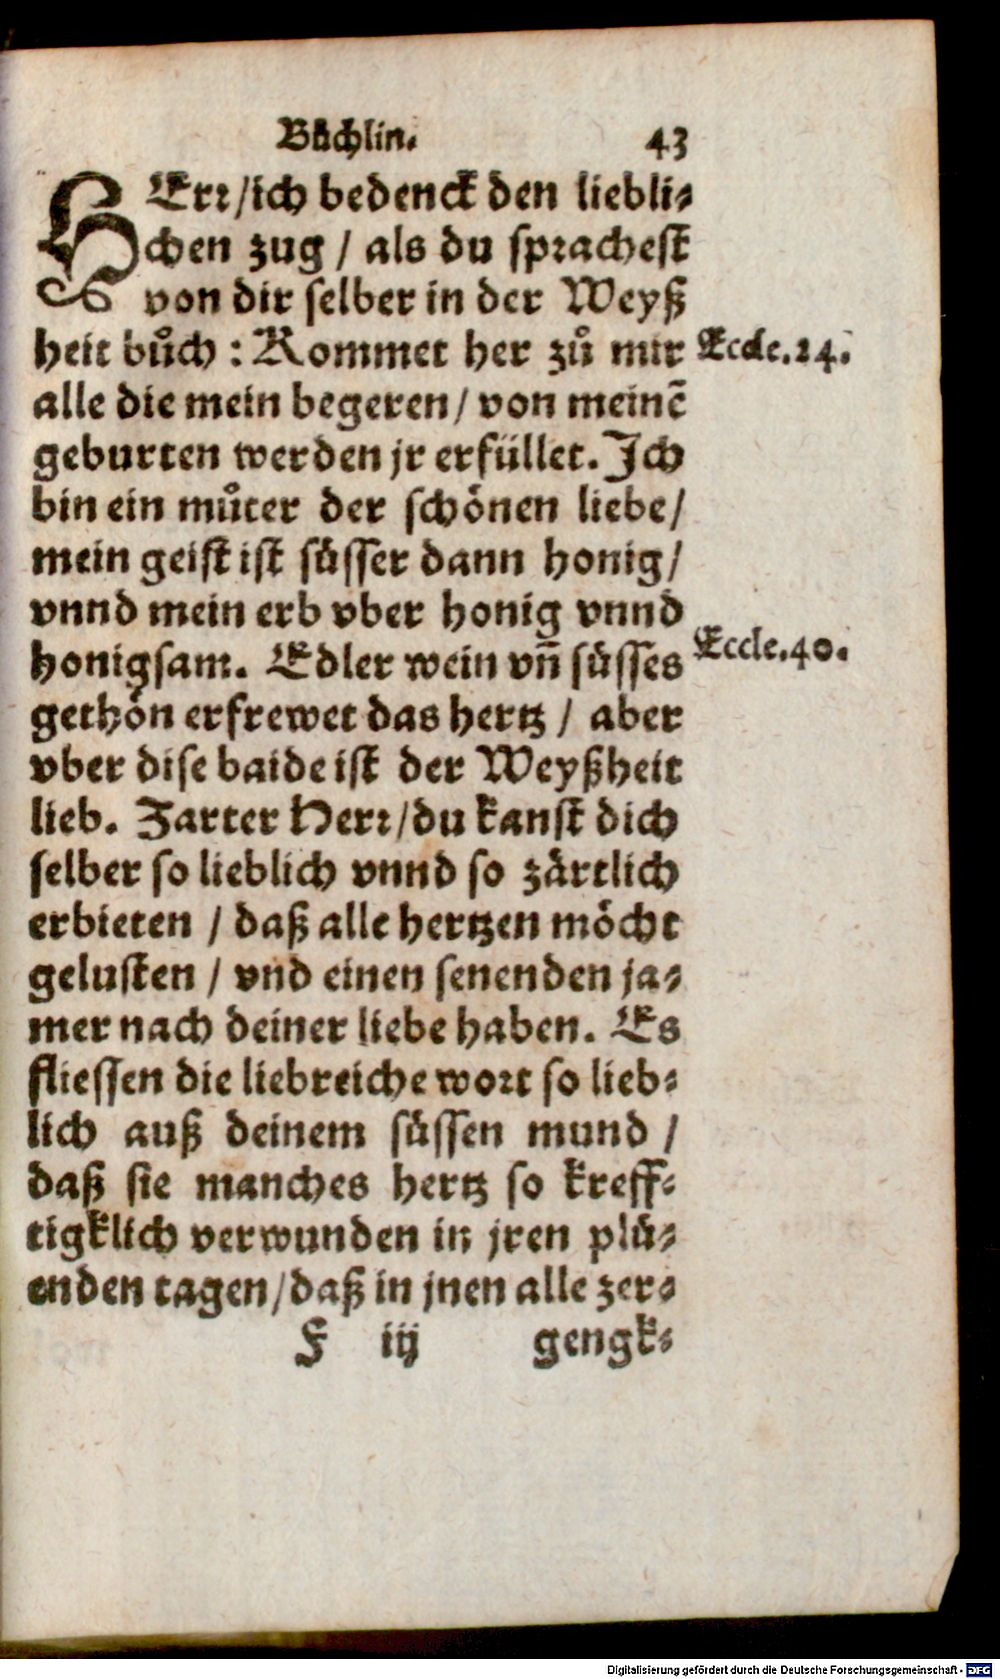 Bůchlin. 43
HErr/ich bedenck den liebli-
chen zug / als du sprachest
von dir selber in der Weyß
heit bůch : Kommet her zů mir
Eccle.24.
alle die mein begeren / von meinē
geburten werden jr erfüllet. Ich
bin ein můter der schönen liebe /
mein geist ist süsser dann honig /
vnnd mein erb vber honig vnnd
honigsam. Edler wein vn̄ süsses
Eccle.40.
gethön erfrewet das hertz / aber
vber dise baide ist der Weyßheit
lieb. Zarter Herr/du kanst dich
selber so lieblich vnnd so zärtlich
erbieten / daß alle hertzen möcht
gelusten / vnd einen senenden ja-
mer nach deiner liebe haben. Es
fliessen die liebreiche wort so lieb-
lich auß deinem süssen mund /
daß sie manches hertz so kreff-
tigklich verwunden in jren plü-
enden tagen/daß in jnen alle zer-
F iij gengk-
Digitalisierung gefördert durch die Deutsche Forschungsgemeinschaft - DFG